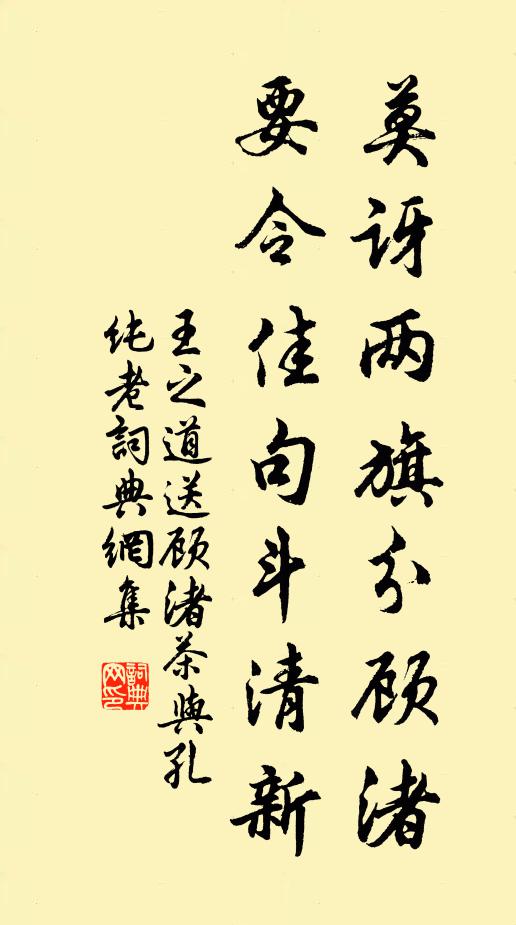 莫讶两旗分顾渚
要令佳句斗清新
王之道送顾渚茶与孔
纯老詞典網集
詞典网印